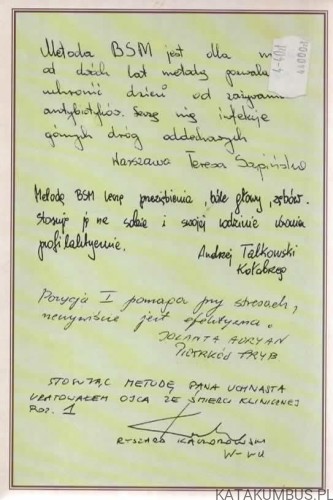 Metoda BSM jest dla m
od dwóch lat metodą pozwala
uchronić dzieci od zażywania
antybiotyków. Leczę nią infekcje
górnych dróg oddechowych
Warszawa Teresa
Metodą BSM leczę przeziębienia, bóle głowy, zębów.
Stosuję ją na sobie i swojej rodzinie
profilaktycznie.
Andrzej Talkowski
Kołobrzeg
Pozycja I pomaga przy stresach,
rzeczywiście jest efektywna.
JOLANTA ADRYAN
PIOTRKÓW TRYB
STOSUJĄC METODĘ PANA UCHNASTA
URATOWAŁEM OJCA ZE ŚMIERCI KLINICZNEJ
POZ. 1
RYSZARD
W-WA
KATAKUMBUS.PL